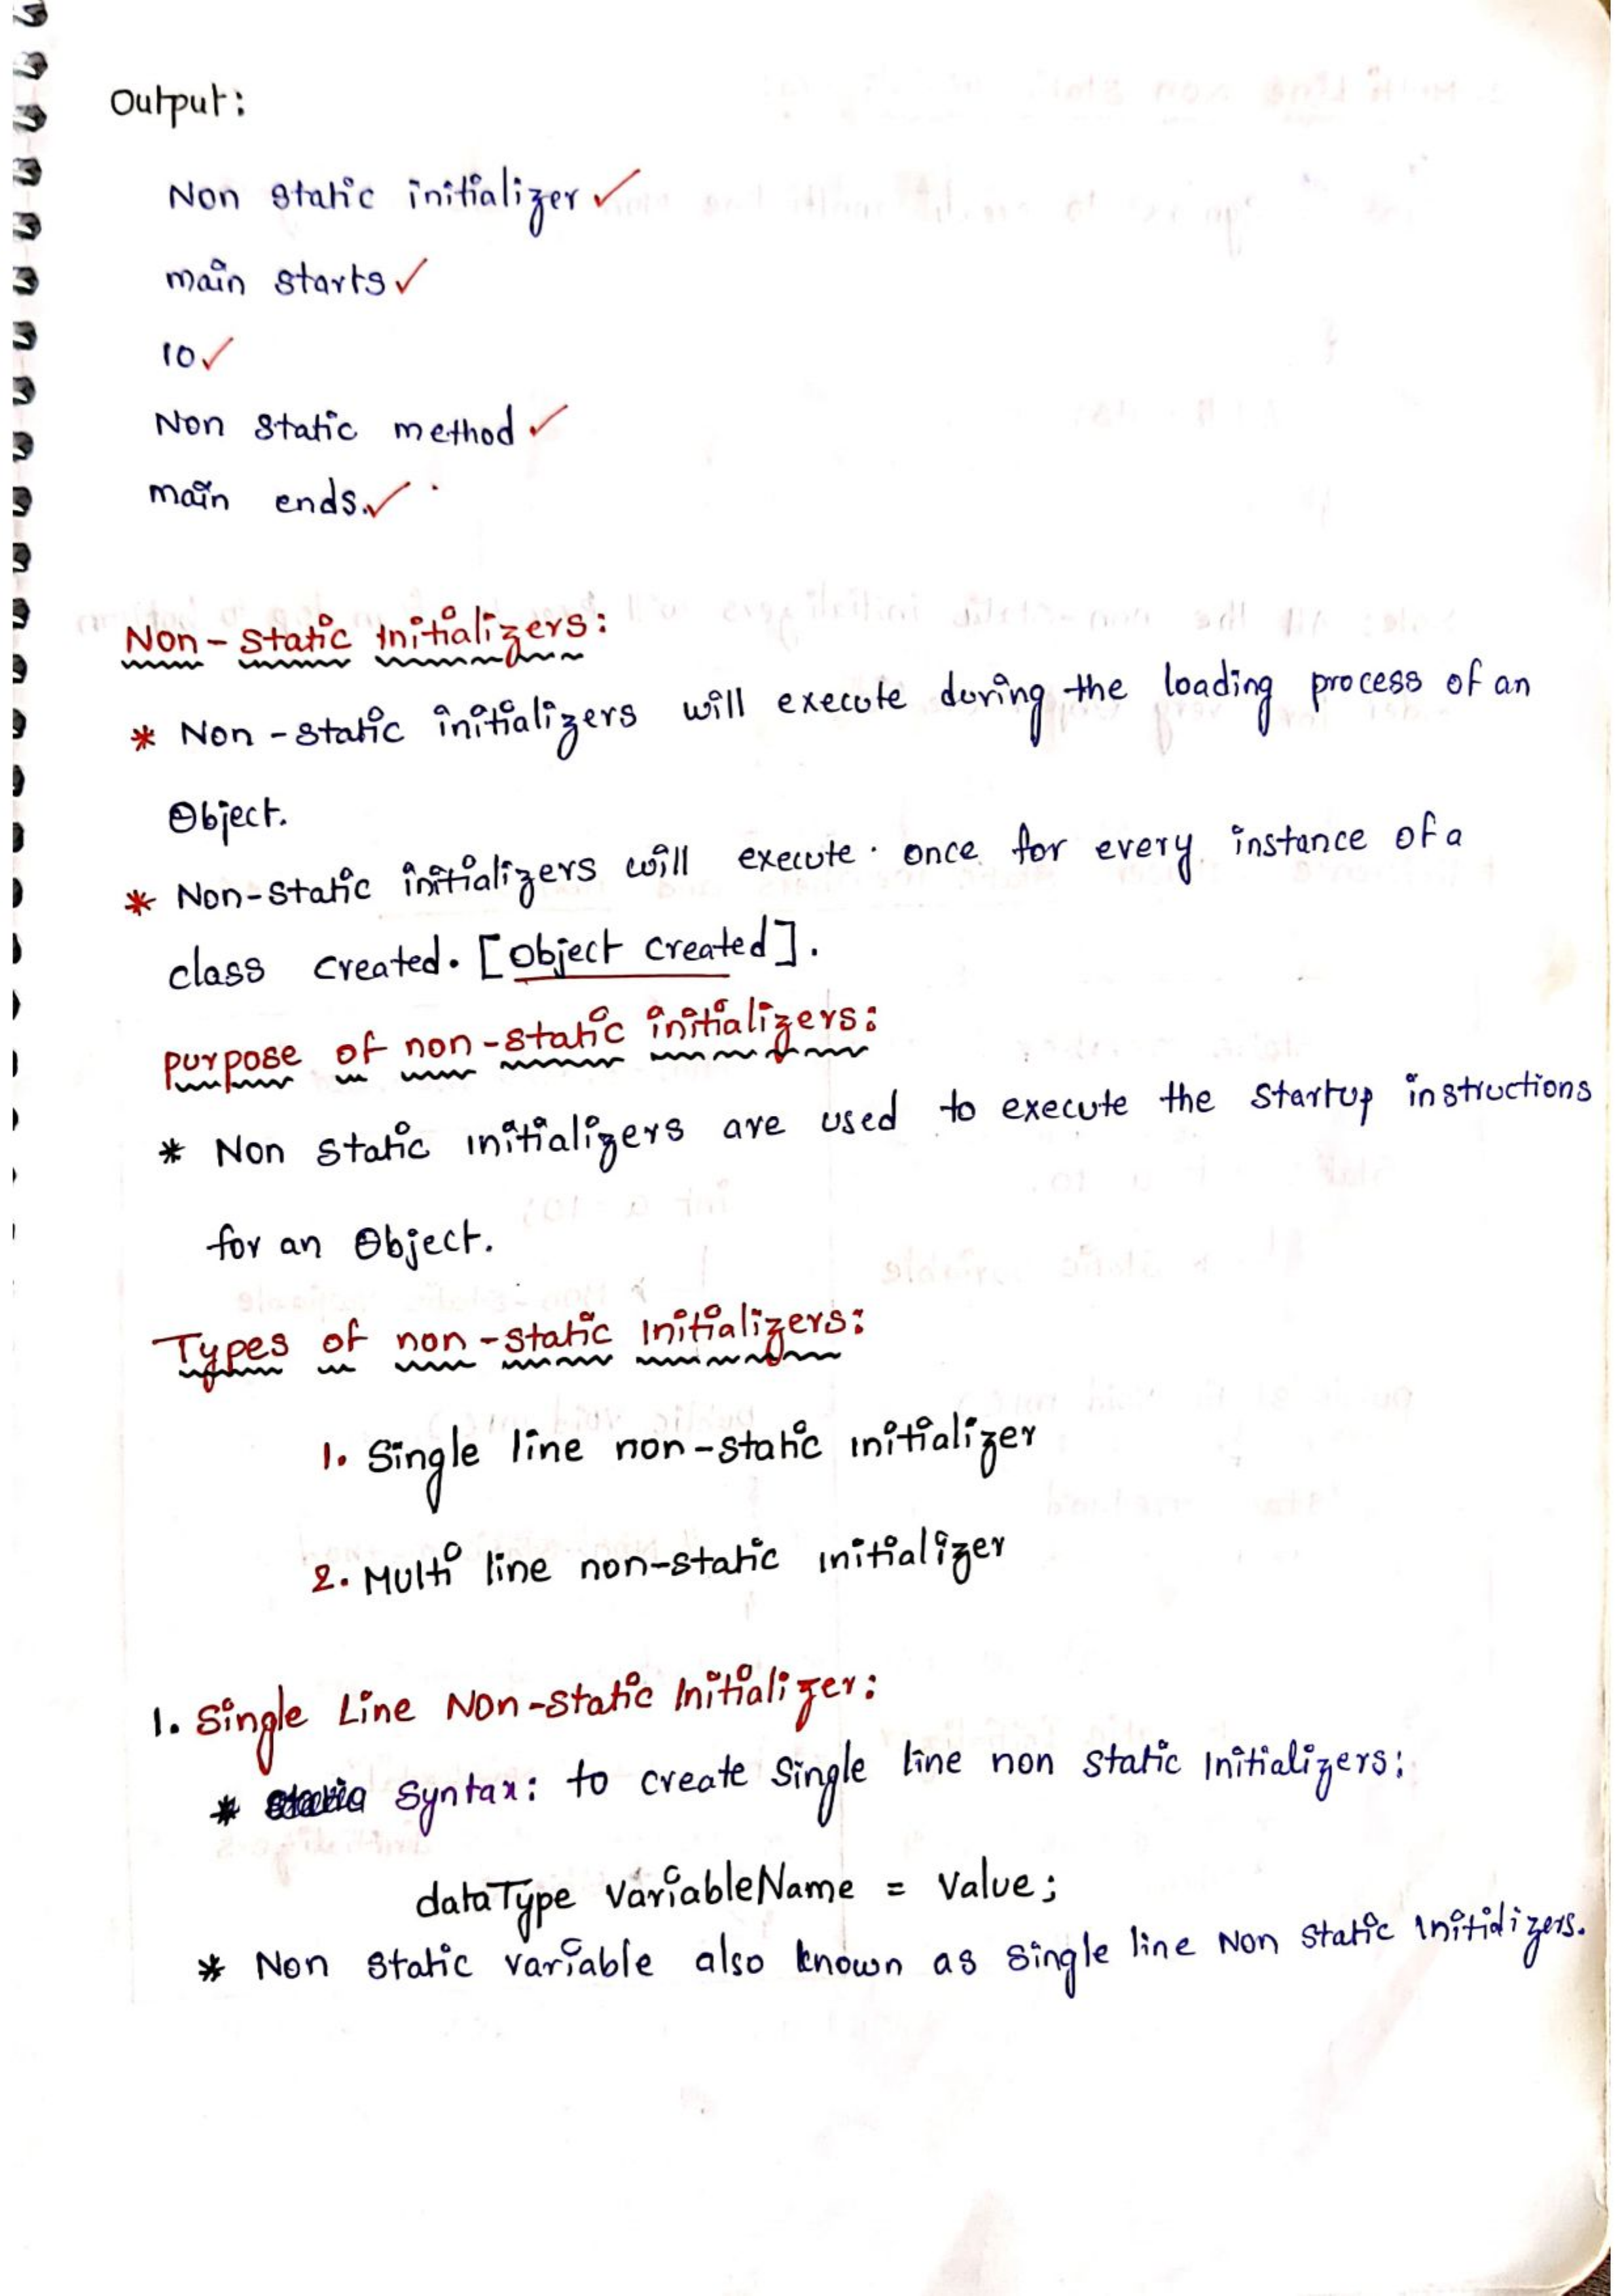 Output:
Non static initializer ✓
main starts ✓
10 ✓
Non static method ✓
main ends. ✓
Non-static initializers:
* Non-static initializers will execute during the loading process of an
Object.
* Non-static initializers will execute once for every instance of a
class created. [object created].
purpose of non-static initializers:
* Non static initializers are used to execute the startup instructions
for an Object.
Types of non-static Initializers:
1. Single line non-static initializer
2. Multi line non-static initializer
1. Single Line Non-static Initializer:
* Syntax: to create single line non static Initializers:
dataType variableName = Value;
* Non static variable also known as single line Non static Initializers.